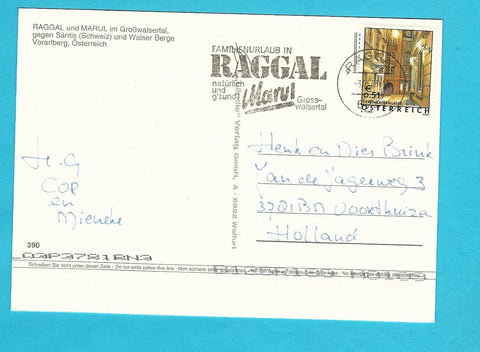 RAGGAL und MARUL im Großwalsertal,
gegen Säntis (Schweiz) und Walser Berge
Vorarlberg, Österreich
FAMILIENURLAUB IN
RAGGAL
natürlich
und
g'sund
Marul
Gross-
walsertal
RAGGAL
€ 0.51
ÖSTERREICH
Verlag GmbH, A - 6922 Wolfurt
H.G
COR
en
Mieneke
Henk en Mies Brink
Jan de Jagerweg 3
3781BN Voorthuizen
Holland
390
03P3781BN3
Schreiben Sie nicht unter dieser Zeile - Do not write below this line - Non scrivere sotto